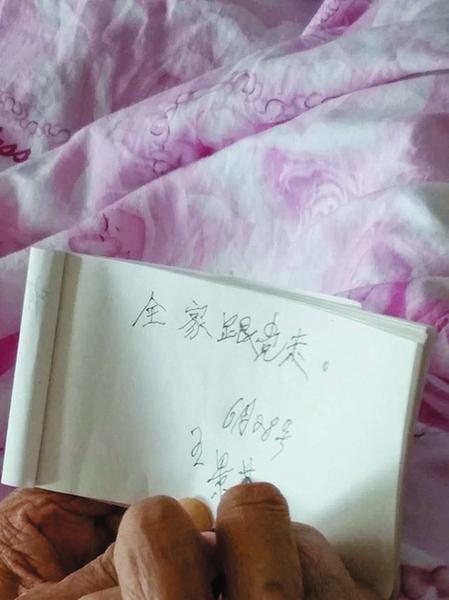 全家跟党走。
6月28号
王景